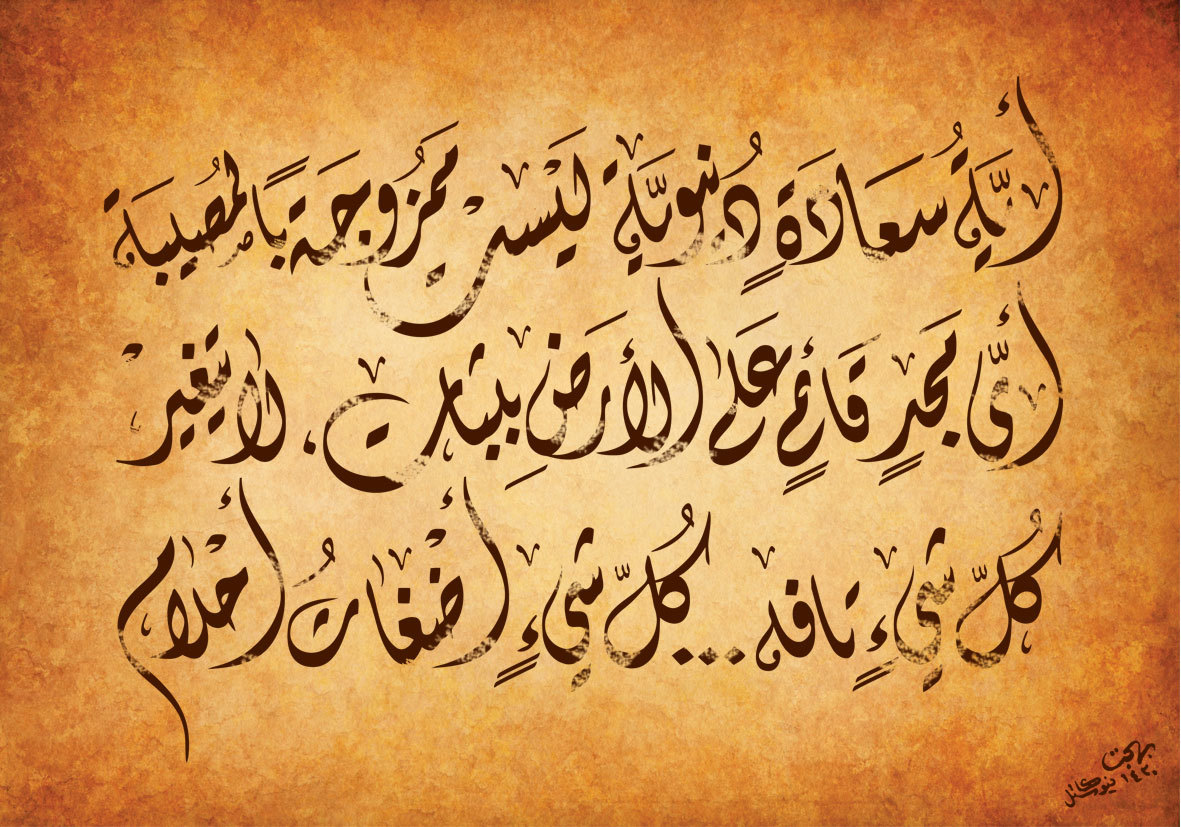 أَيَّةُ سُعَادَةٍ دُنيويَّة لَيْست مَمزُوجَة بًالمُصيبَة
أيّ مَجَدٍ قَائمٍ عَلى الأرَضِ بِثبات، لا يتغيرْ
كُلّ شيءٍ تافه... كُلّ شيءٍ أضْغَاثُ أحْلام
بهجت
١٤٣٠ نيوكاسل